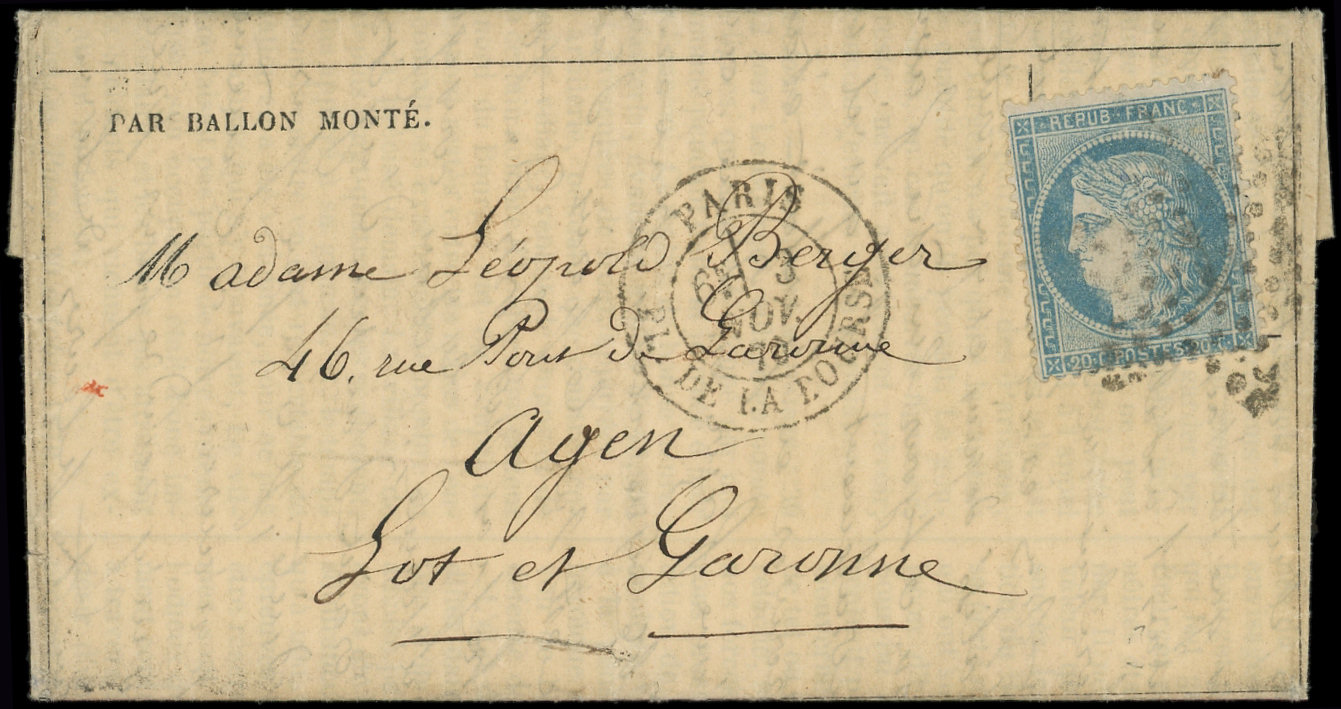 PAR BALLON MONTÉ.
REPUB. FRANC.
20 C. POSTES 20 C.
PARIS
3
NOV.
70
PL. DE LA BOURSE
Madame Léopold Berger
46, rue Pont de Garonne
Agen
Lot et Garonne